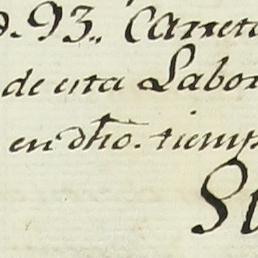 93., Carret
de esta Labor
en dho. tiemp